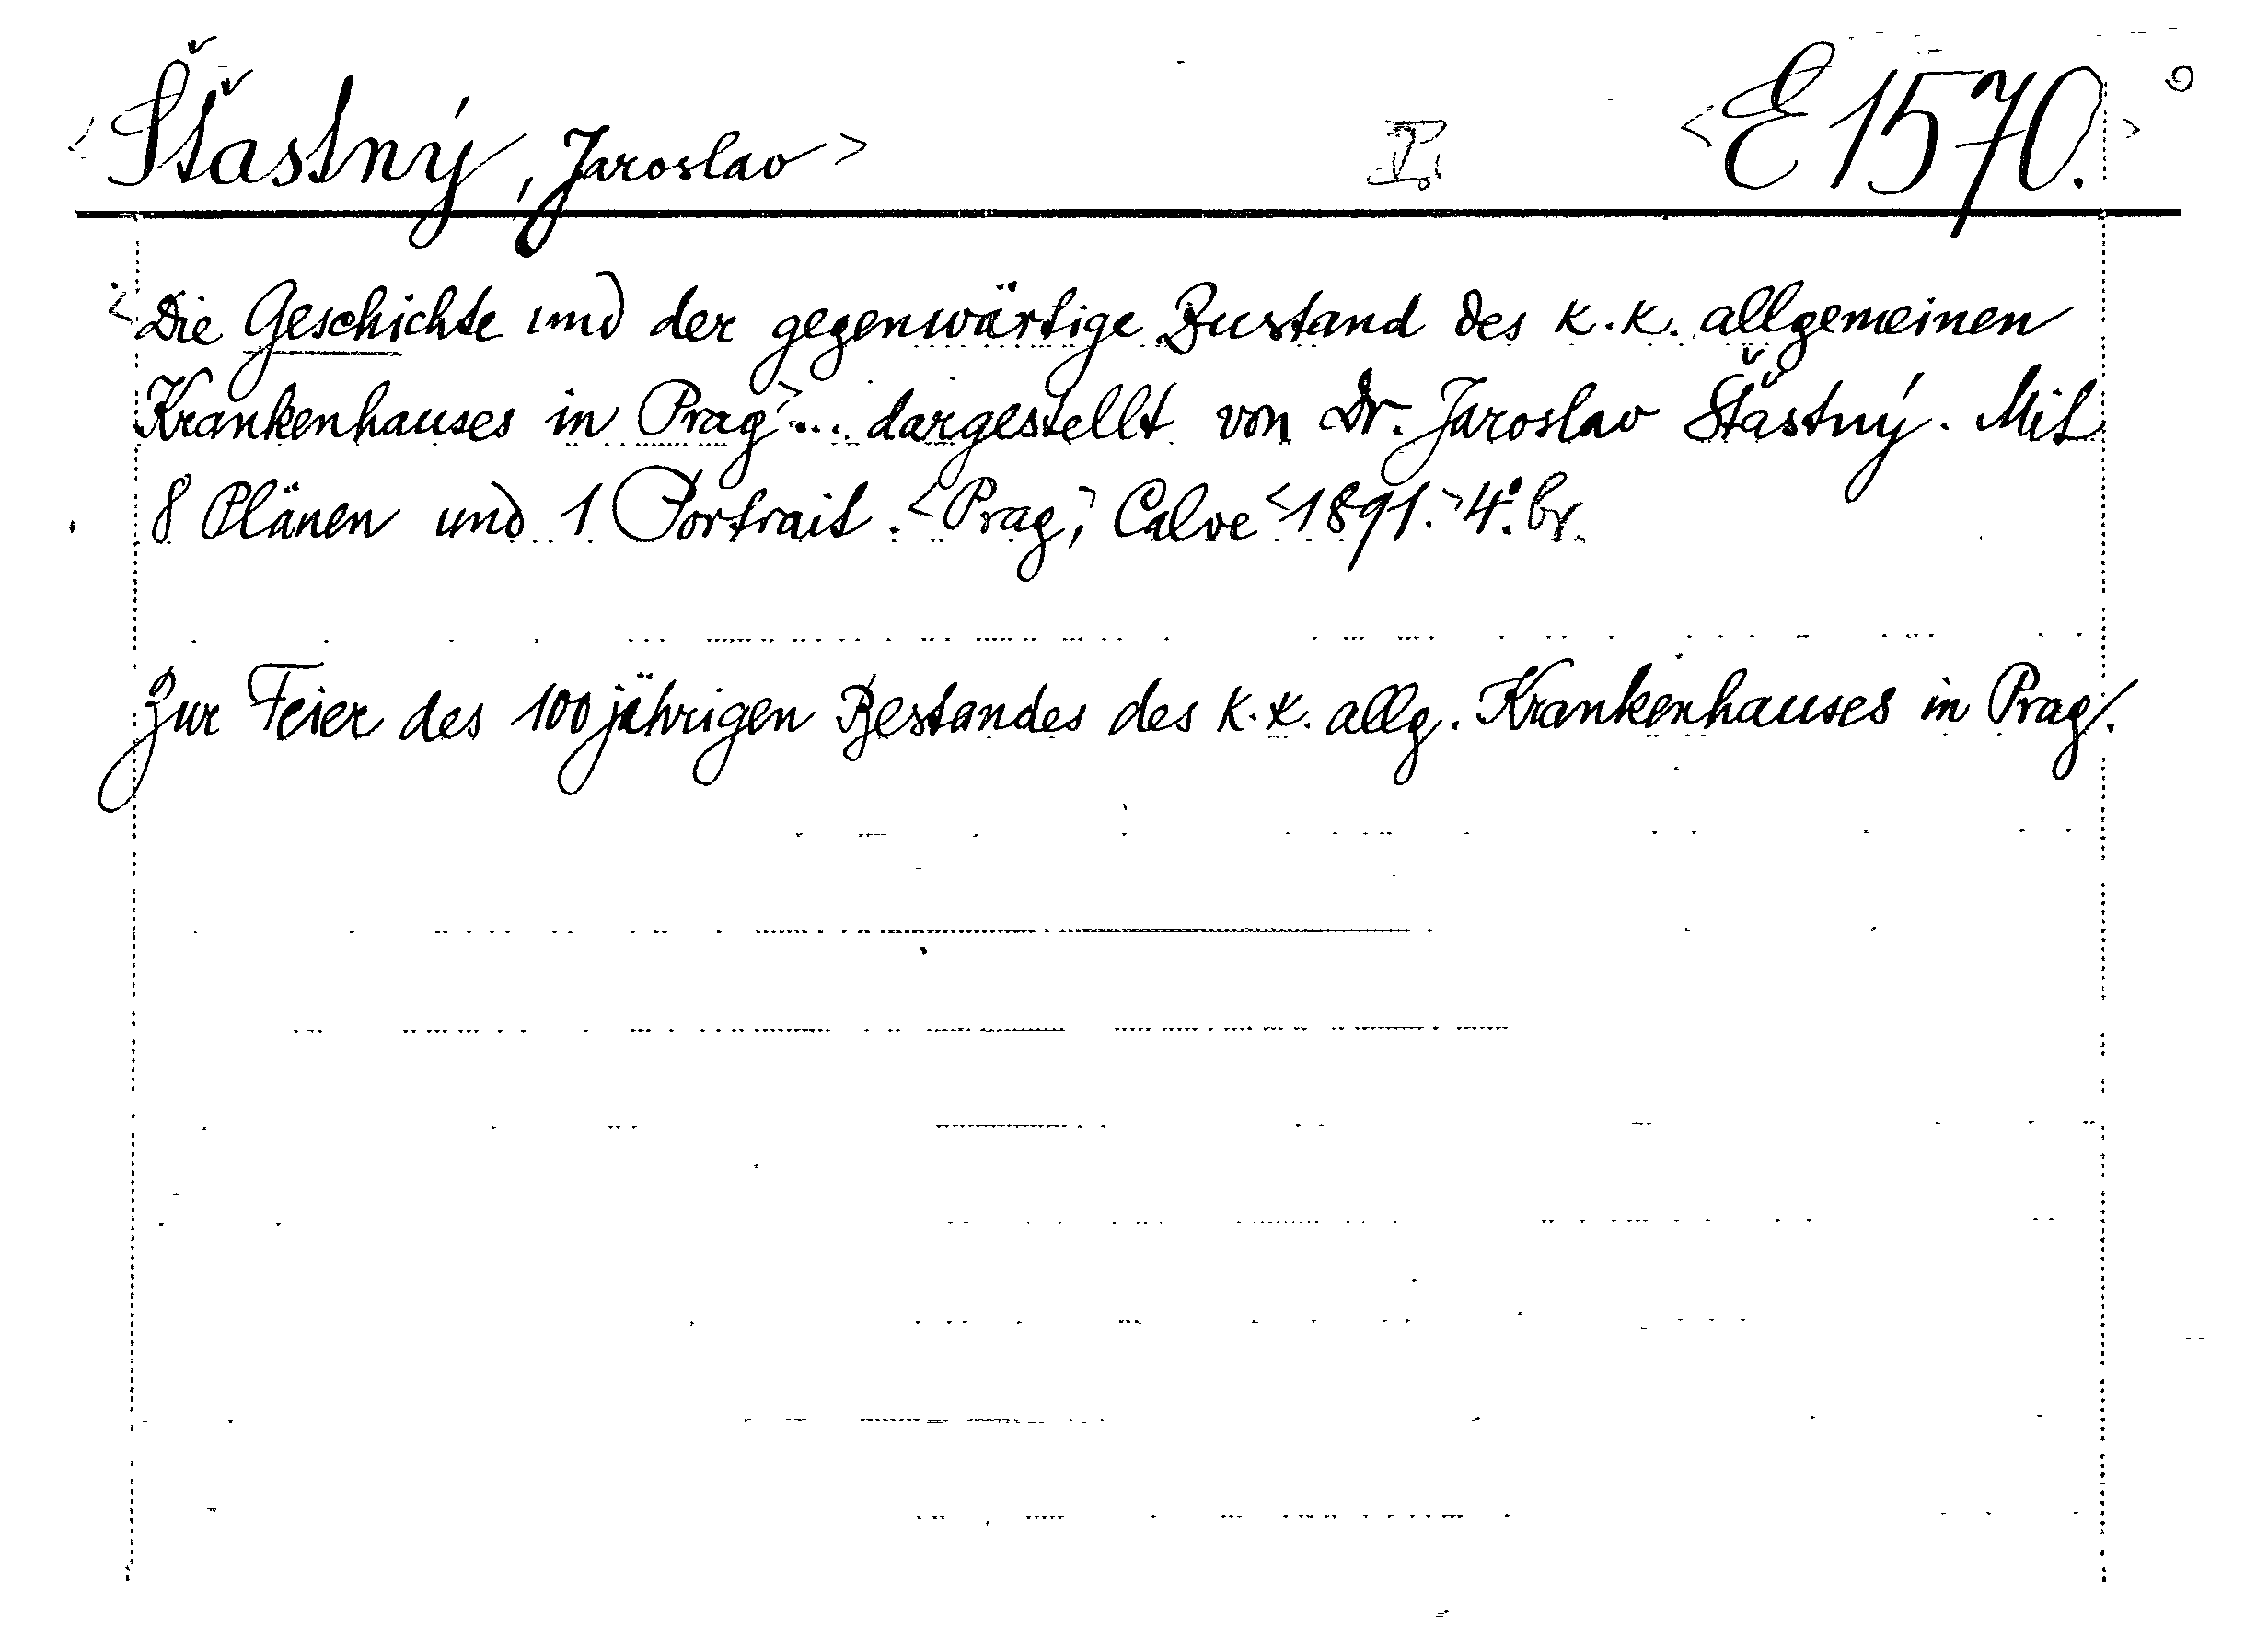 <Šťastný, Jaroslav> I. <E 1570.>
<Die Geschichte und der gegenwärtige Zustand des k.k. allgemeinen
Krankenhauses in Prag> ... dargestellt von Dr. Jaroslav Šťastný. Mit
8 Plänen und 1 Portrait. <Prag,> Calve <1891.> 4°. br.
Zur Feier des 100jährigen Bestandes des k.k. allg. Krankenhauses in Prag.